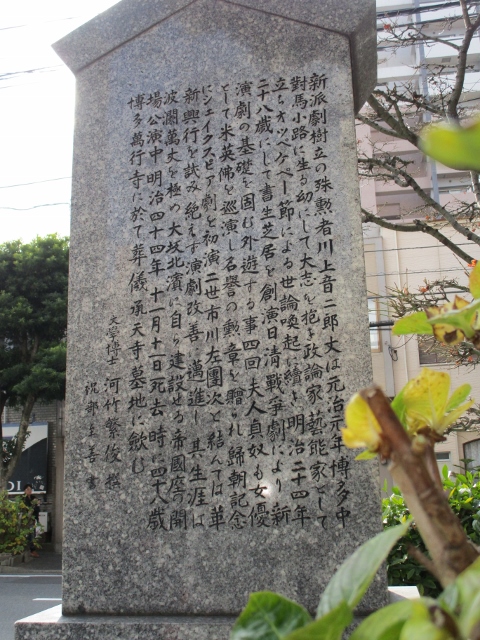 新派劇樹立の殊勲者川上音二郎丈は元治元年博多中
對馬小路に生る幼にして大志を抱き政論家藝能家として
立ちオッペケペー節による世論喚起に續き明治二十四年
二十八歳にして書生芝居を創演日清戰爭劇により新
演劇の基礎を固む外遊する事四回夫人貞奴も女優
として米英佛を巡演し名譽の勲章を贈られ歸朝記念
にシェイクスピア劇を初演二世市川左團次と結んでは革
新興行を試み絶えず演劇改善に邁進し其生涯は
波瀾萬丈を極め大坂北濱に自ら建設せる帝國座の開
場公演中明治四十四年十一月十一日死去時に四十八歳
博多萬行寺に於て葬儀承天寺墓地に歛む
文學博士 河竹繁俊 撰
書